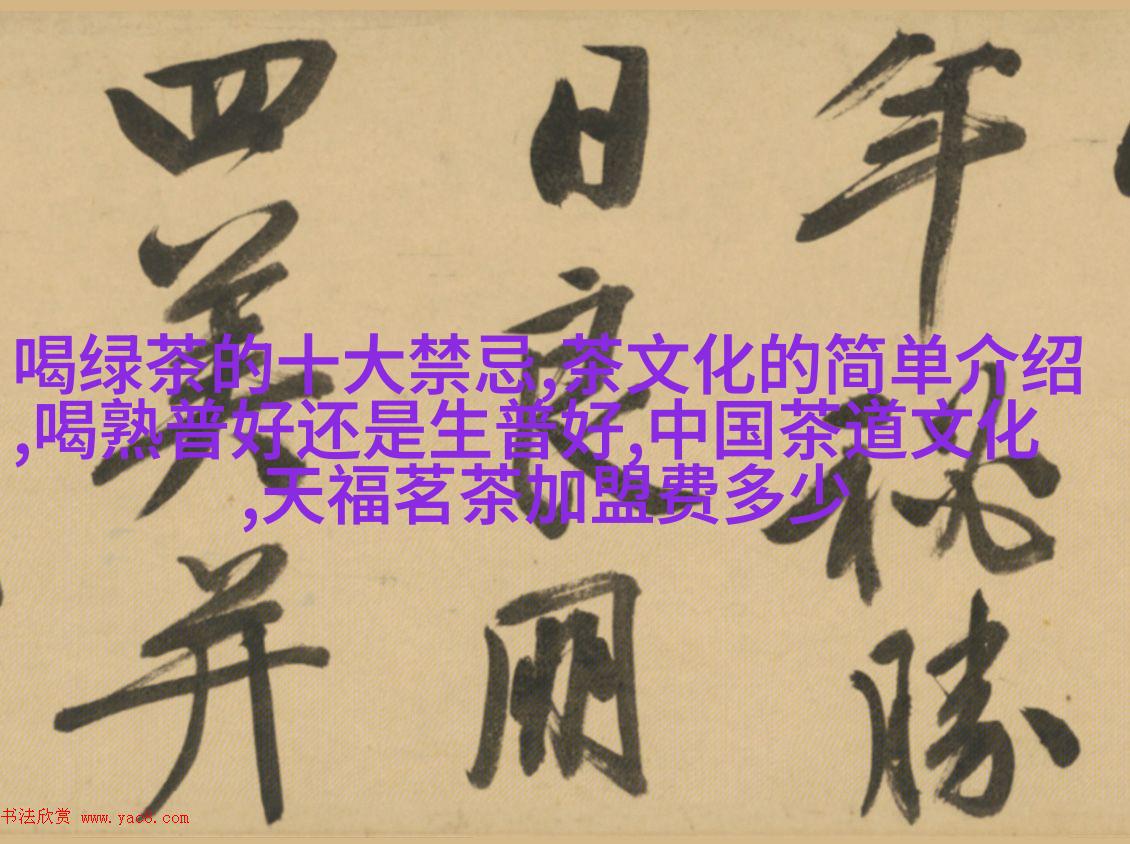 年秘勝
日良朋
四美并
喝绿茶的十大禁忌,茶文化的简单介绍
,喝熟普好还是生普好,中国茶道文化
,天福茗茶加盟费多少
书法欣赏 www.yac8.com